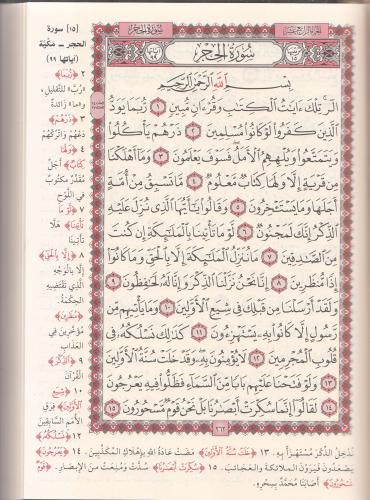 سُورَةُ الحِجْر
بِسْمِ اللَّهِ الرَّحْمَٰنِ الرَّحِيمِ
الٓر تِلْكَ ءَايَٰتُ الْكِتَٰبِ وَقُرْءَانٍ مُّبِينٍ ١ رُّبَمَا يَوَدُّ
الَّذِينَ كَفَرُوا۟ لَوْ كَانُوا۟ مُسْلِمِينَ ٢ ذَرْهُمْ يَأْكُلُوا۟
وَيَتَمَتَّعُوا۟ وَيُلْهِهِمُ الْأَمَلُ فَسَوْفَ يَعْلَمُونَ ٣ وَمَآ أَهْلَكْنَا
مِن قَرْيَةٍ إِلَّا وَلَهَا كِتَابٌ مَّعْلُومٌ ٤ مَّا تَسْبِقُ مِنْ أُمَّةٍ
أَجَلَهَا وَمَا يَسْتَـْٔخِرُونَ ٥ وَقَالُوا۟ يَٰٓأَيُّهَا الَّذِى نُزِّلَ عَلَيْهِ
الذِّكْرُ إِنَّكَ لَمَجْنُونٌ ٦ لَّوْ مَا تَأْتِينَا بِالْمَلَٰٓئِكَةِ إِن كُنتَ
مِنَ الصَّٰدِقِينَ ٧ مَا نُنَزِّلُ الْمَلَٰٓئِكَةَ إِلَّا بِالْحَقِّ وَمَا كَانُوٓا۟
إِذًا مُّنظَرِينَ ٨ إِنَّا نَحْنُ نَزَّلْنَا الذِّكْرَ وَإِنَّا لَهُۥ لَحَٰفِظُونَ ٩
وَلَقَدْ أَرْسَلْنَا مِن قَبْلِكَ فِى شِيَعِ الْأَوَّلِينَ ١٠ وَمَا يَأْتِيهِم مِّن
رَّسُولٍ إِلَّا كَانُوا۟ بِهِۦ يَسْتَهْزِءُونَ ١١ كَذَٰلِكَ نَسْلُكُهُۥ فِى
قُلُوبِ الْمُجْرِمِينَ ١٢ لَا يُؤْمِنُونَ بِهِۦ وَقَدْ خَلَتْ سُنَّةُ الْأَوَّلِينَ
١٣ وَلَوْ فَتَحْنَا عَلَيْهِم بَابًا مِّنَ السَّمَآءِ فَظَلُّوا۟ فِيهِ يَعْرُجُونَ
١٤ لَقَالُوٓا۟ إِنَّمَا سُكِّرَتْ أَبْصَٰرُنَا بَلْ نَحْنُ قَوْمٌ مَّسْحُورُونَ ١٥
٢٦٢
[١٥] سورة
الحجر ــ مكيّة
(آياتها ٩٩)
٢ ﴿رُّبَمَا﴾
«رُبَّ» للتقليل،
و«ما» زائدة
٣ ﴿ذَرْهُمْ﴾
دَعْهُم واتركهم
٤ ﴿وَلَهَا
كِتَابٌ﴾ أجلٌ
مُقدَّر مكتوبٌ
في اللَّوْح
٧ ﴿لَّوْ مَا
تَأْتِينَا﴾ هَلّا
تأتينا
٨ ﴿إِلَّا بِالْحَقِّ﴾
إلّا بالوَجْه
الذي تقتضيه
الحِكمَة
﴿مُّنظَرِينَ﴾
مُؤخَّرين في
العذاب
٩ ﴿الذِّكْرَ﴾
القُرآن
١٠ ﴿شِيَعِ
الْأَوَّلِينَ﴾ فِرَقِ
الأمم السابقين
١٢ ﴿نَسْلُكُهُ﴾
نُدخِلُ الذِّكرَ مُستَهزَأً بِهِ. ١٣ ﴿خَلَتْ سُنَّةُ الْأَوَّلِينَ﴾ مضت عادةُ الله بإهلاكِ المكذِّبين. ١٤ ﴿يَعْرُجُونَ﴾
يصعدون فيَرَوْن الملائكة والعجائب. ١٥ ﴿سُكِّرَتْ أَبْصَارُنَا﴾ سُدَّتْ ومُنِعَتْ من الإبصار. ﴿قَوْمٌ
مَّسْحُورُونَ﴾ أصابنا مُحمَّدٌ بسِحْرِه.